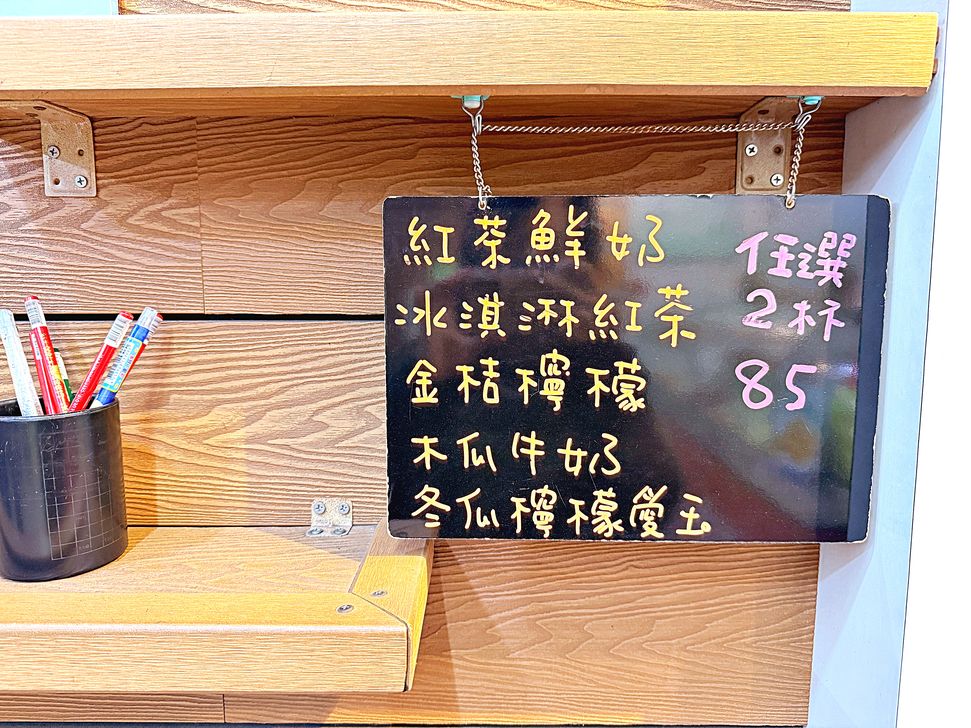 紅茶鮮奶
冰淇淋紅茶
金桔檸檬
木瓜牛奶
冬瓜檸檬愛玉
任選
2杯
85